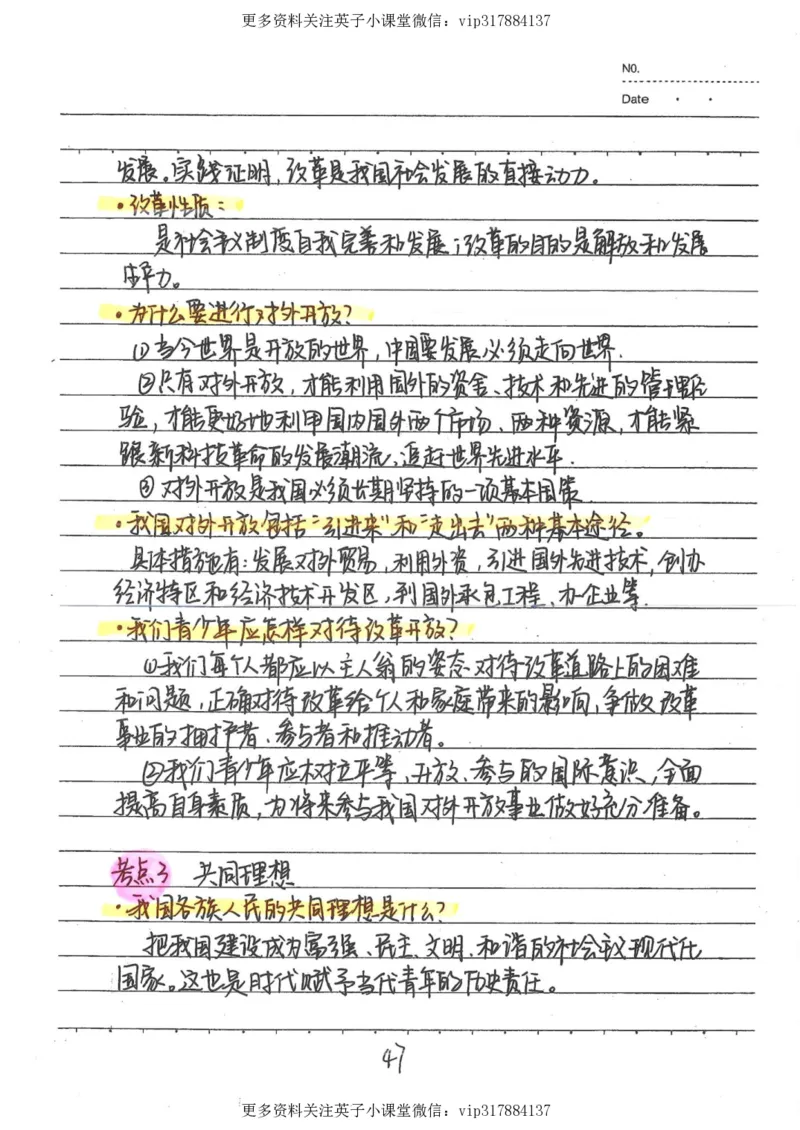 更多资料关注英子小课堂微信：vip317884137
NO.
Date
发展。实践证明，改革是我国社会发展的直接动力。
·改革性质：
是社会主义制度自我完善和发展；改革的目的是解放和发展
生产力。
·为什么要进行对外开放？
①当今世界是开放的世界，中国要发展必须走向世界.
②只有对外开放，才能利用国外的资金、技术和先进的管理经
验，才能更好地利用国内国外两个市场、两种资源，才能紧
跟新科技革命的发展潮流、追赶世界先进水平.
③对外开放是我国必须长期坚持的一项基本国策.
·我国对外开放包括“引进来”和“走出去”两种基本途径。
具体措施有：发展对外贸易，利用外资，引进国外先进技术，创办
经济特区和经济技术开发区，到国外承包工程、办企业等.
·我们青少年应怎样对待改革开放？
①我们每个人都应以主人翁的姿态对待改革道路上的困难
和问题，正确对待改革给个人和家庭带来的影响，争做改革
事业的拥护者、参与者和推动者。
②我们青少年应树立平等、开放、参与的国际意识，全面
提高自身素质，为将来参与我国对外开放事业做好充分准备。
考点3 共同理想
·我国各族人民的共同理想是什么？
把我国建设成为富强、民主、文明、和谐的社会主义现代化
国家。这也是时代赋予当代青年的历史责任。
47
更多资料关注英子小课堂微信：vip317884137